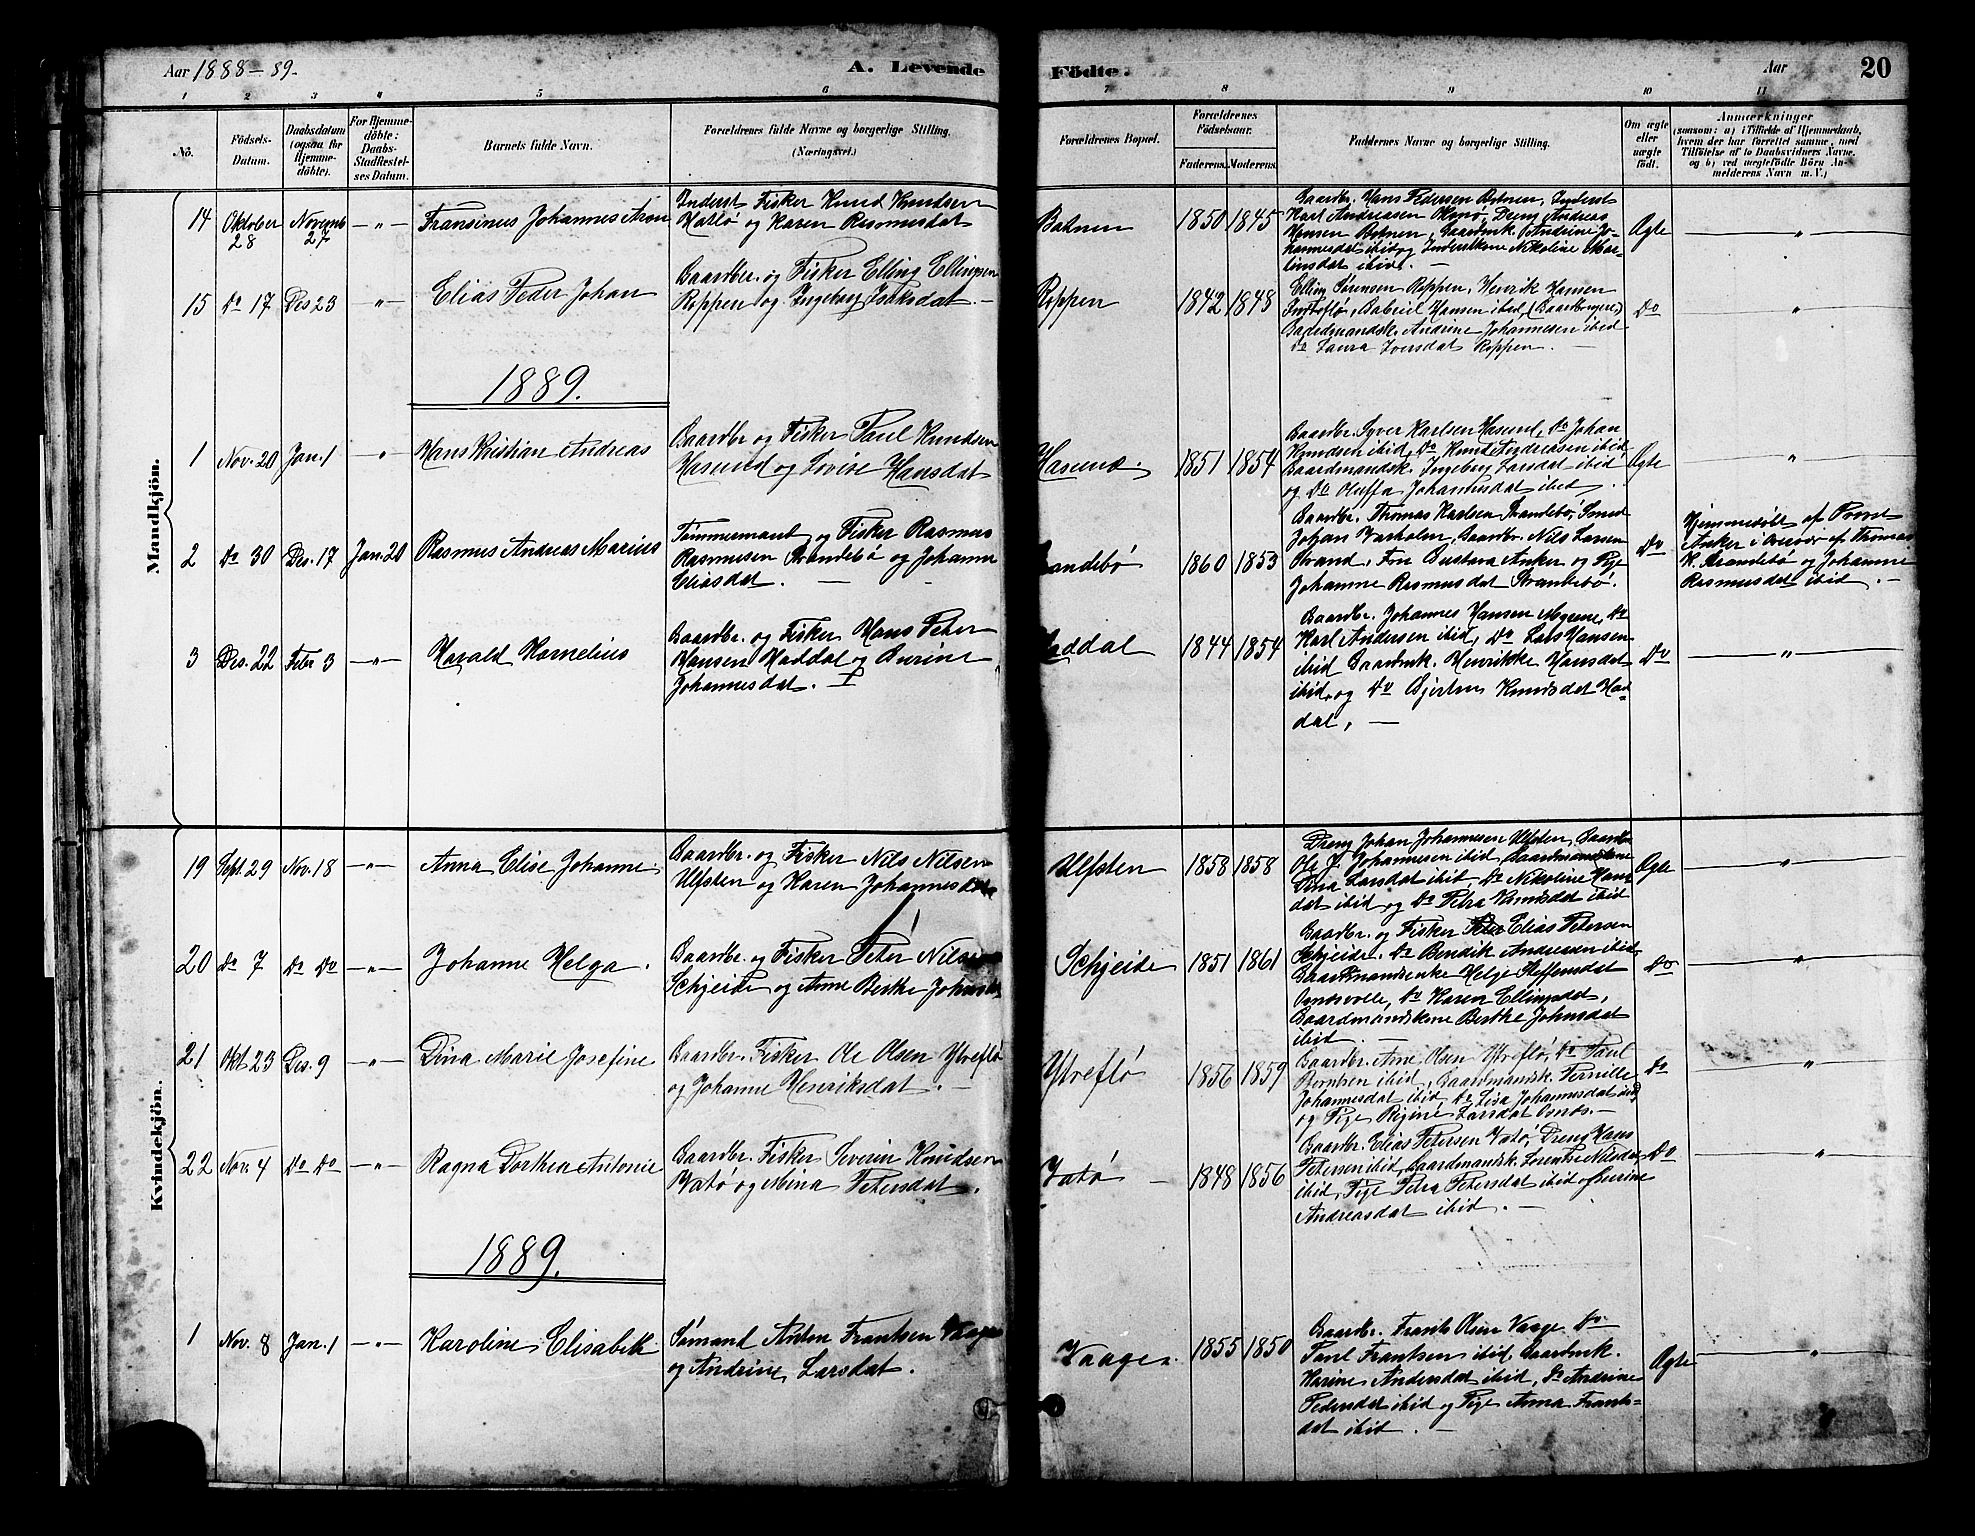 Aar 1888-89. A. Levende Födte. Aar 20
1 2 3 4 5 6 7 8 9 10 11
No.
Födsels-
Datum.
Daabsdatum
(ogsaa for
Hjemme-
döbte).
For Hjemme-
döbte:
Daabs-
Stadfæstel-
ses Datum.
Barnets fulde Navn.
Forældrenes fulde Navne og borgerlige Stilling.
(Næringsvei.)
Forældrenes Bopæl.
Forældrenes
Födselsaar.
Faderens. Moderens.
Faddernes Navne og borgerlige Stilling.
Om ægte
eller
uægte
födt.
Anmærkninger
(saasom: a) i Tilfælde af Hjemmedaab,
hvem der har forrettet samme, med
Tilföielse af to Daabsvidners Navne,
og b) ved uægtefödte Börn An-
melderens Navn m. V.)
Mandkjön.
14 Oktober 28 Novemb 27 -„- Fransinus Johannes Aron
Inderst Fisker Knud Knudsen
Hatlø og Karen Rasmusdat
Botnen 1850 1845
Gaardbr. Hans Pedersen Botnen, Inderst
Karl Andreasen, Dreng Andreas
Hansen Botnen, Gaardmk. Andrine Jo-
hannesdat ibid og Nikoline Mar-
tinsdat ibid. -
Ægte „
15 Do 17 Des 23 „ Elias Peder Johan
Gaardbr. og Fisker Elling Ellingsen
Røppen og Ingeborg Isaksdat. -
Røppen 1842 1848
Elling Sørensen Røppen, Henrik Hansen
Indreflø, Gabriel Hansen ibid, (Gaardbrugere)
Gaardmandsk. Andrine Johannesen ibid
Do Laura Iversdat Røppen. -
Do „
1889.
1 Nov. 20 Jan. 1 -„- Hans Kristian Andreas
Gaardbr og Fisker Paul Knudsen
Hasund og Lovise Hansdat
Hasund. 1851 1854
Gaardbr. Syver Karlsen Hasund, Do Johan
Knudsen ibid, Do Knud Andreasen ibid
Gaardmandsk. Ingeborg Larsdat ibid
og Do Oluffa Johannesdat ibid.
Ægte „
2 Do 30 Des. 17 Jan. 20 Rasmus Andreas Marius
Tømmermand og Fisker Rasmus
Rasmusen Strandebø og Johanne
Eliasdat. - -
andebø 1860 1853
Gaardbr. Thomas Karlsen Strandebø, Smed
Johan, Gaardbr. Nils Larsen
Strand, Fru Gustava Anker og Pige
Johanne Rasmusdat Strandebø.
Do
Hjemmedøbt af Provst
Anker i Overvær af Thomas
K. Strandebø og Johanne
Rasmusdat ibid. -
3 Des. 22 Febr 3 -„- Harald Kornelius
Gaardbr. og Fisker Hans Peter
Hansen Haddal og Burine
Johannesdat. -
Haddal 1844 1854
Gaardbr. Johannes Hansen, Do
Karl Andersen ibid, Do Lars Hansen
ibid Gaardmk. Henrikke Hansdat
ibid, og Do Knudsdat Had-
dal, -
Do „
Kvindekjön.
19 Sept. 29 Nov. 18 -„- Anna Elise Johanne.
Gaardbr. og Fisker Nils Nilsen
Ulfsten og Karen Johannesdat
Ulfsten 1858 1858
Dreng Johan Johannesen Ulfsten, Gaardbr
Ole J. Johannesen ibid, Gaardmandskone
Dina Larsdat ibid, Do Nikoline Hans-
dat ibid, og Do Petra Knudsdat ibid
Ægte „
20 Do 7 Do Do -„- Johanne Helga.
Gaardbr. og Fisker Peter Nilsen
Schjeide og Anne Birthe Johnsdat
Schjeide 1851 1861
Gaardbr. og Fisker Elias Petersen
Schjeide. Do Bendik Andreasen ibid,
Gaardmandsenke Helge Steffensdat
Osnesvolle, Do Karen Ellingsdat,
Gaardmandskone Berthe Johnsdat
ibid. -
Do „
21 Okt 23 Des. 9 -„- Dina Marie Josefine
Gaardbr. Fisker Ole Olsen Ytreflø
og Johanne Henriksdat. -
Ytreflø 1856 1859
Gaardbr. Arne Olsen Ytreflø, Do Paul
Berntsen ibid, Gaardmandsk. Pernille
Johannesdat ibid, Do Lisa Johannesdat ibid
og Pige Regine Larsdat Osnes. -
Do „
22 Nov. 4 Do Do -„- Ragna Dorthea Antonie
Gaardbr. Fisker Severin Knudsen
Vatø og Mina Petersdat.
Vatø - 1848 1856
Gaardbr. Elias Petersen Vatø, Dreng Hans
Petersen ibid, Gaardmandsk. Lorentse Nilsdat
ibid, Pige Petra Petersdat ibid
Andreasdat ibid. -
Do „
1889.
1 Nov. 8 Jan. 1 -„- Karoline Elisabeth
Sømand Anton Frantsen Vaage
og Andrine Larsdat.
Vaage. 1855 1850
Gaardbr. Frants Olsen Vaage. Do
Paul Frantsen ibid, Gaardmk.
Karine Andersdat ibid, Do Andrine
Pedersdat ibid og Pige Anna Frants-
dat ibid. -
Ægte „